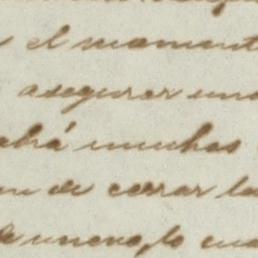 el moment
asegurar un
abrá muchas
de cerrar la
de nuevo, lo cua